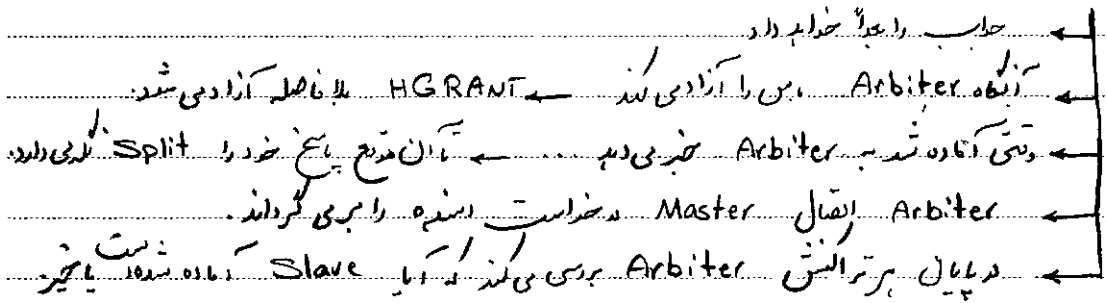 ← جواب را بعداً خواهد داد
← آنگاه Arbiter باس را آزاد می کند ← HGRANT بلافاصله آزاد می شود.
← وقتی آماده شد به Arbiter خبر می دهد ... ← تا آن موقع پاسخ خود را Split نگه می دارد.
← Arbiter اتصال Master درخواست دهنده را برمی گرداند.
← در پایان هر تراکنش Arbiter بررسی می کند که آیا Slave آماده شده است یا خیر.